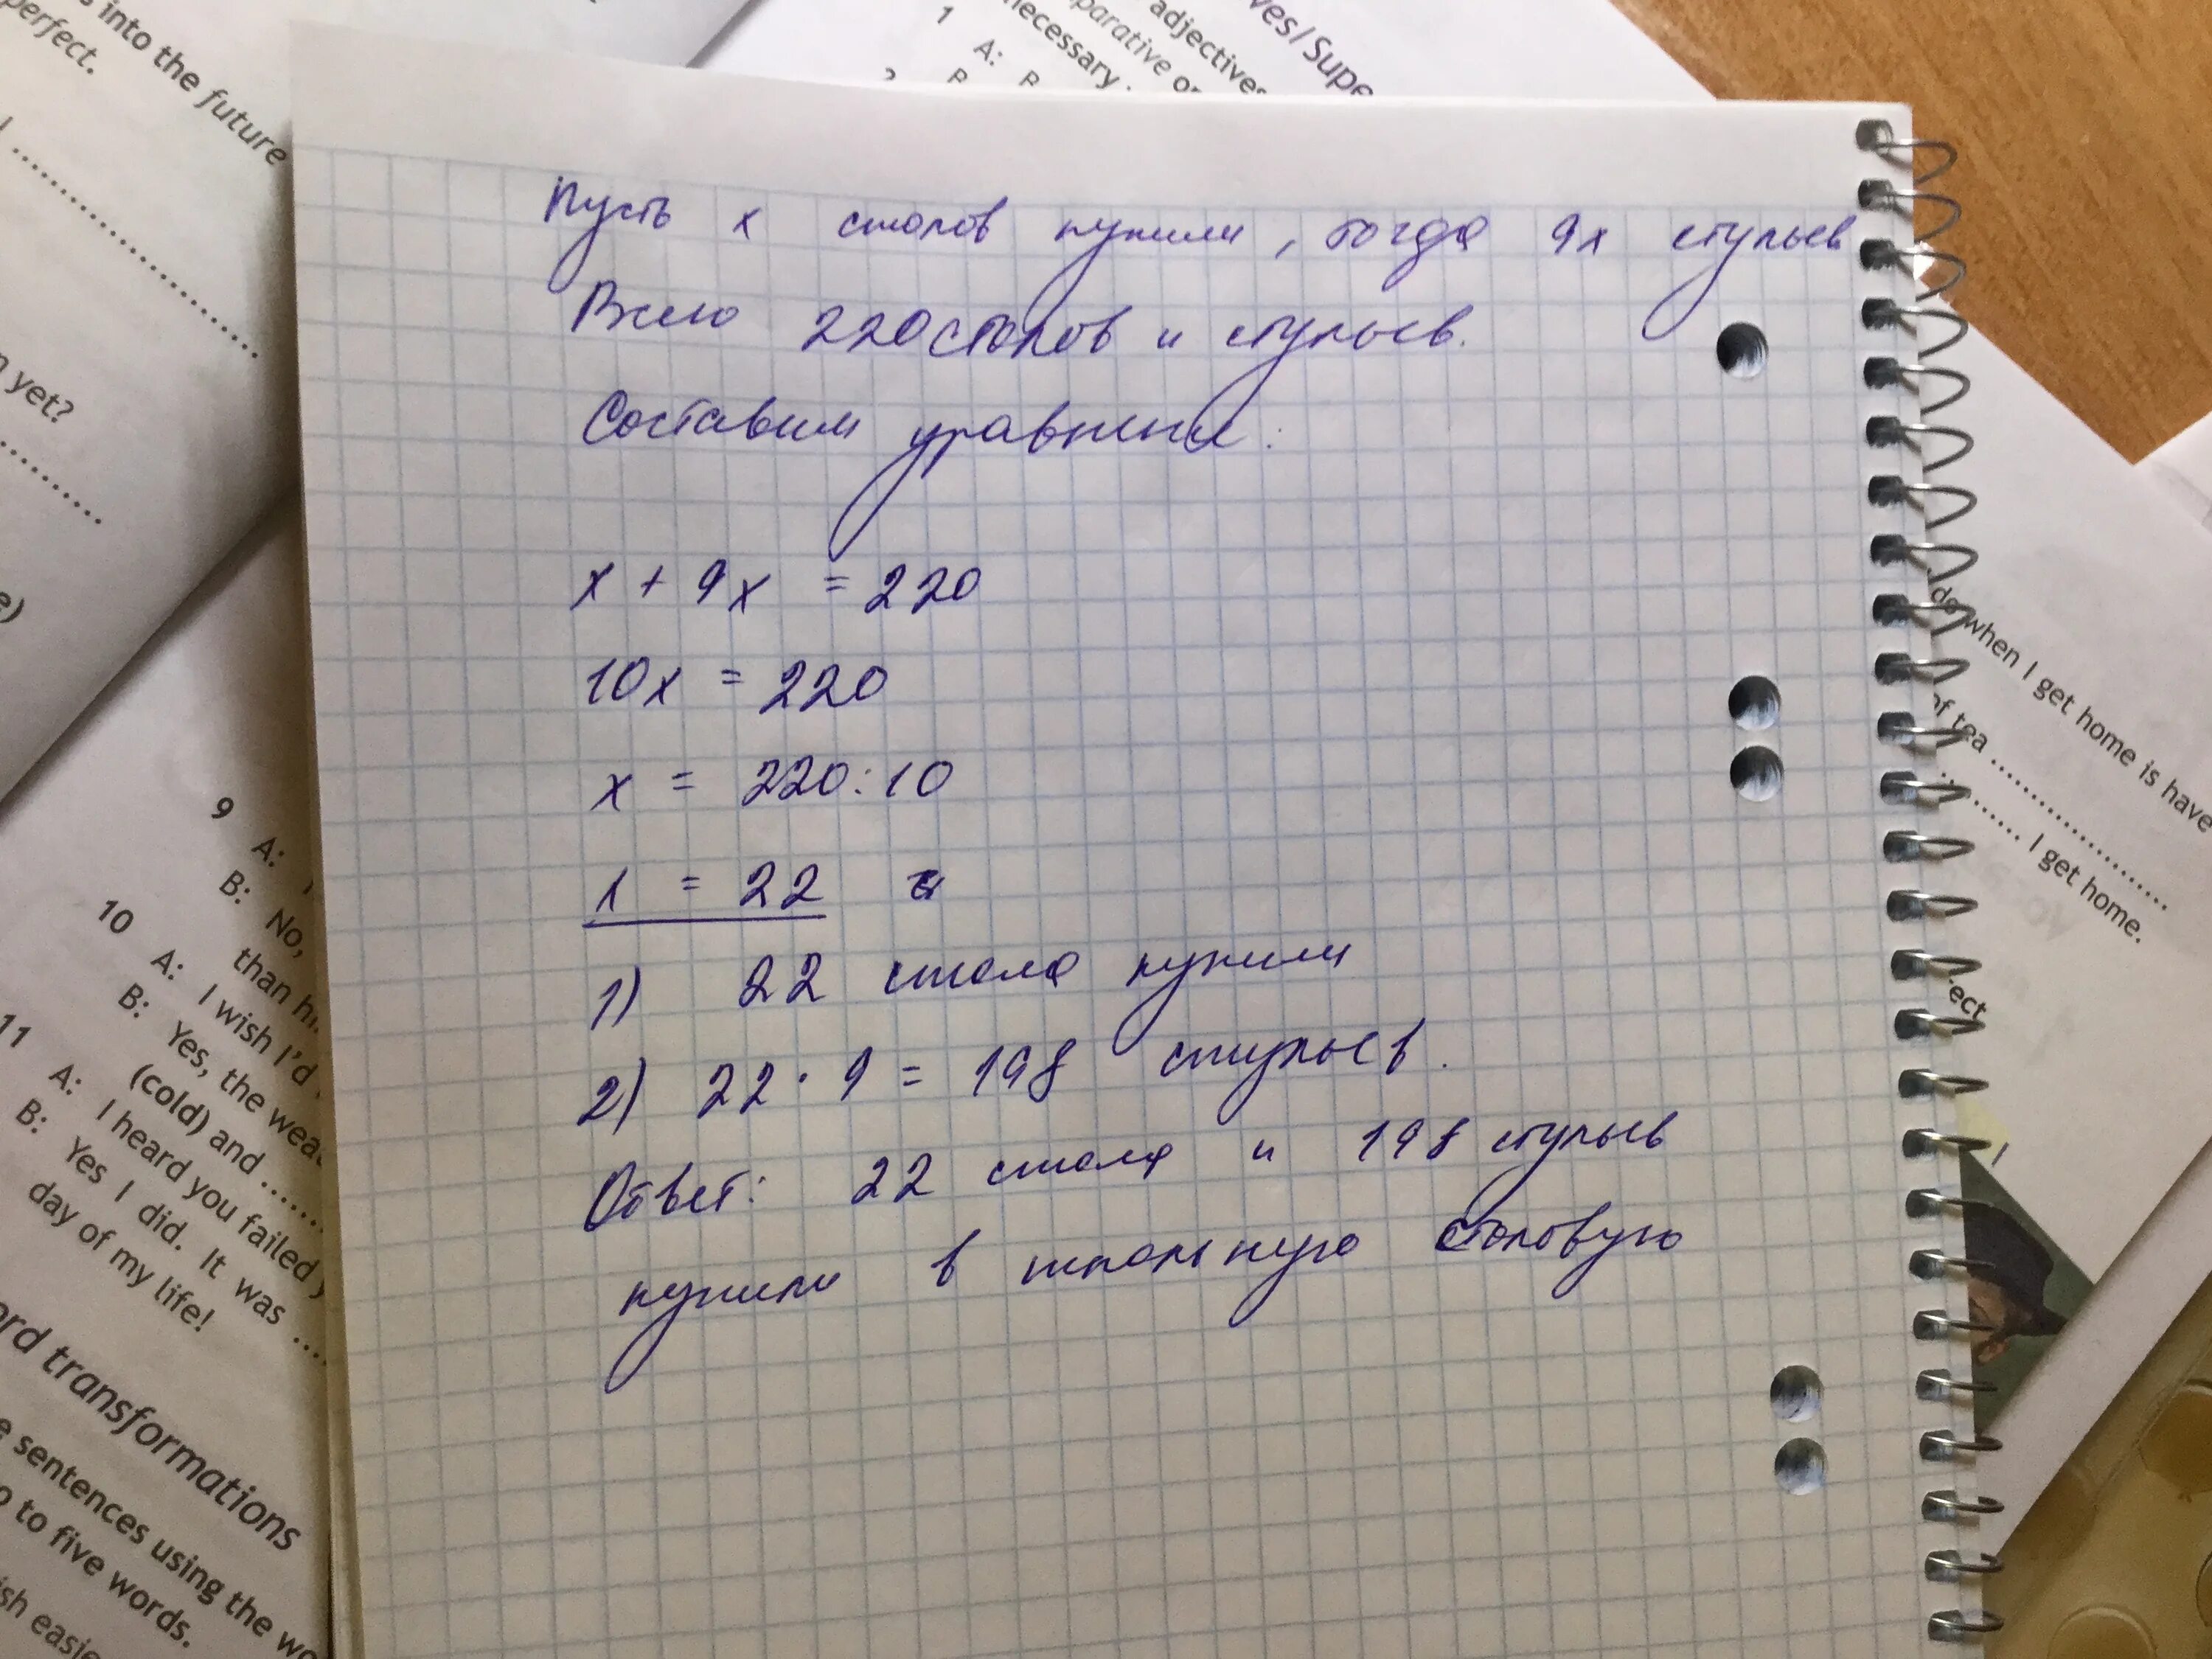 Пусть x столов купили, тогда 9x стульев
Всего 220 столов и стульев.
Составим уравнение:
x + 9x = 220
10x = 220
x = 220:10
x = 22
1) 22 стола купили
2) 22 · 9 = 198 стульев.
Ответ: 22 стола и 198 стульев
купили в школьную столовую
into the future
perfect.
yet?
9 A:
B: No,
than
10 A: I wish I'd
B: Yes, the
(cold) and ........
11 A: I heard you failed
B: Yes I did. It was ....
day of my life!
transformations
sentences using the
to five words.
1 A:
necessary.
adjectives
when I get home is have
of tea ....................
........ I get home.